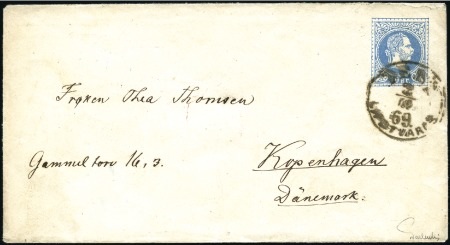 69
Frøken Thea Thomsen
Gammeltorv 16, 3.
Kopenhagen
Dänemark.